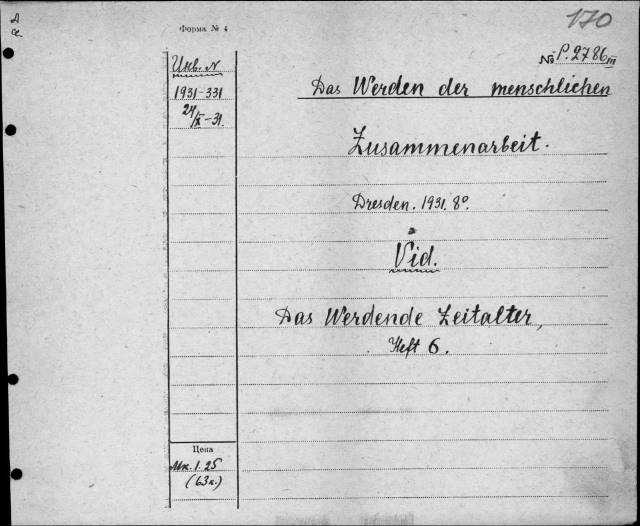 Форма № 4
170
№ P.2786 III
Инв. №
1931-331
24/X-31.
Das Werden der menschlichen
Zusammenarbeit.
Dresden. 1931. 8º.
Vid.
Das Werdende Zeitalter,
Heft 6.
Цена
Мк. 1.25
(63к.)